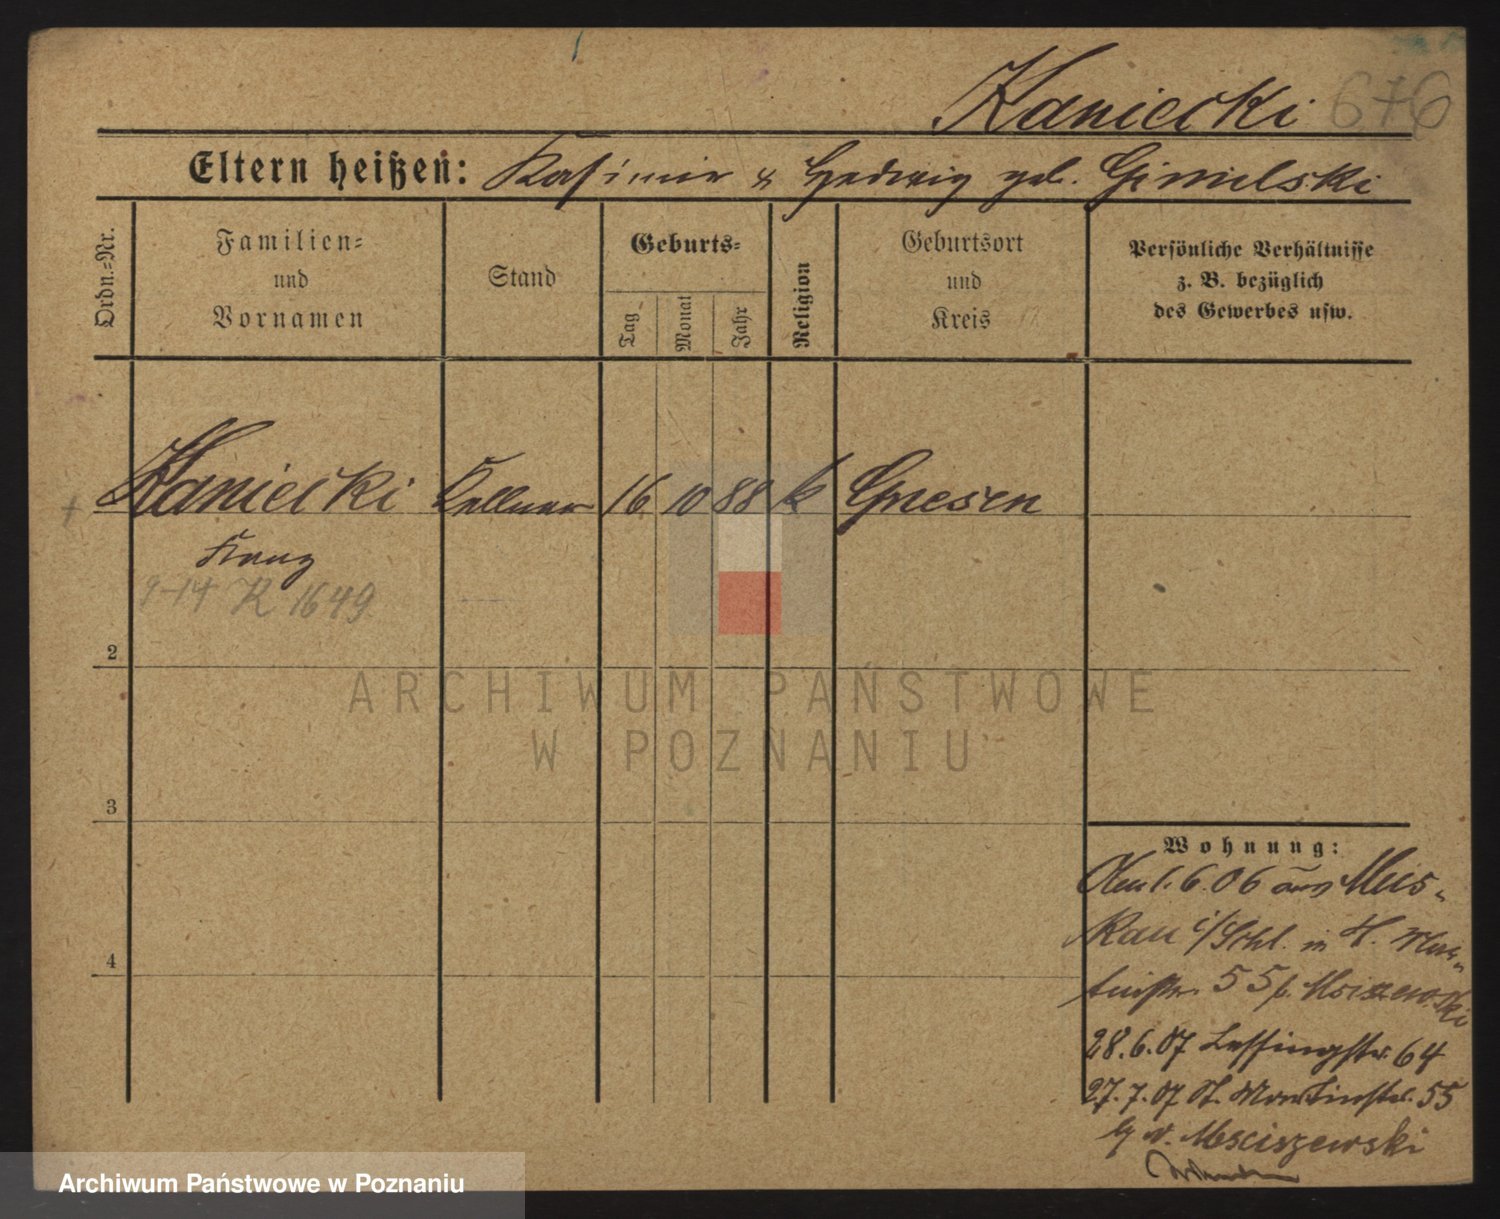 Kaniecki 676
Eltern heißen: Kasimir & Hedwig geb. Gimelski
Ordn.-Nr.
Familien-
und
Vornamen
Stand
Geburts-
Tag
Monat
Jahr
Religion
Geburtsort
und
Kreis
Persönliche Verhältnisse
z. B. bezüglich
des Gewerbes usw.
Kaniecki Kellner 16 10 88 k Gnesen
Franz
9-14 K 1649
2
3
4
Wohnung:
1.6.06 aus Mus-
kau i/Schl. in St. Mar-
tinstr. 55 b. Msciszewski
28.6.07 Lessingstr. 64
27.7.07 St. Martinstr. 55
Msciszewski
ARCHIWUM PAŃSTWOWE
W POZNANIU
Archiwum Państwowe w Poznaniu